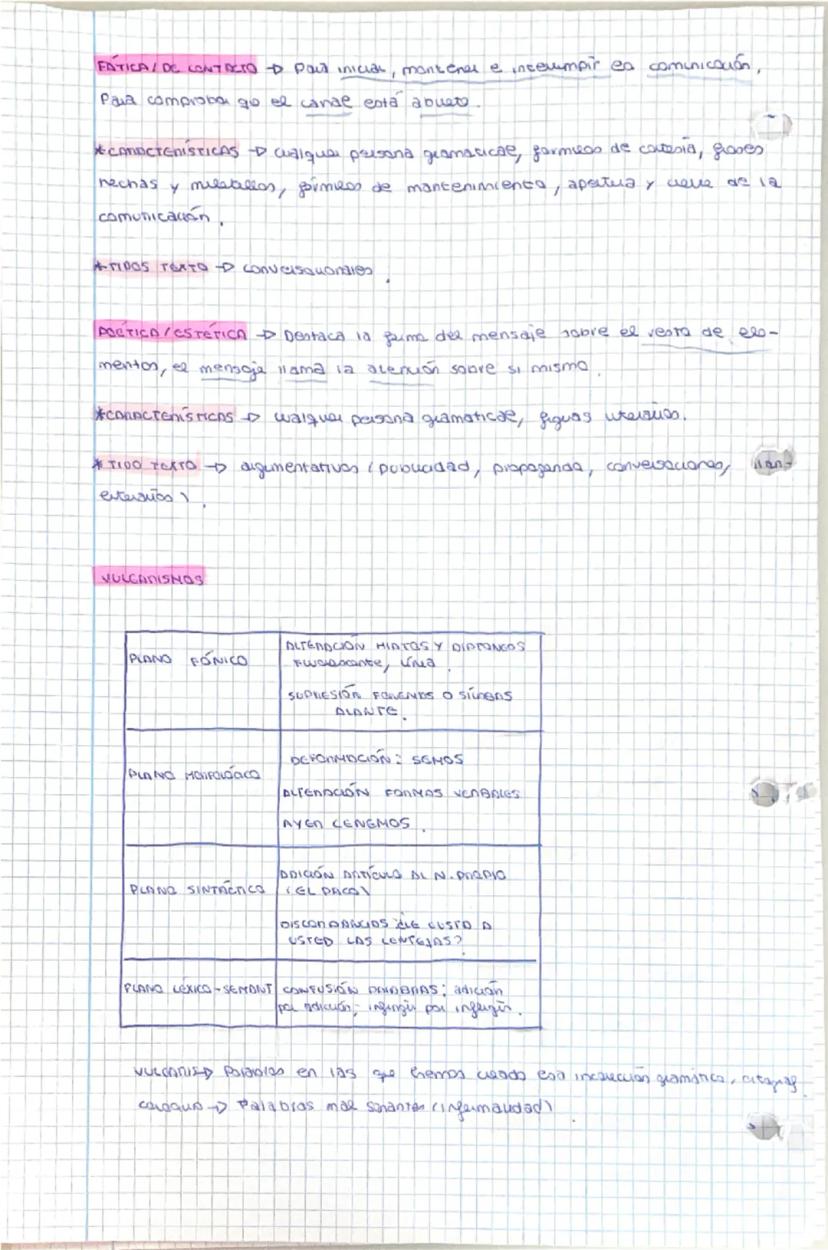 FÁTICA / DE CONTACTO → Para iniciar, mantener e interrumpir la comunicación,
Para comprobar que el canal está abierto.
*CARACTERÍSTICAS → cualquier persona gramatical, fórmulas de cortesía, frases
hechas y muletillas, fórmulas de mantenimiento, apertura y cierre de la
comunicación.
*TIPOS TEXTO → conversacionales.
POÉTICA / ESTÉTICA → Destaca la forma del mensaje sobre el resto de ele-
mentos, el mensaje llama la atención sobre si mismo.
*CARACTERÍSTICAS → cualquier persona gramatical, figuras literarias.
*TIPO TEXTO → argumentativos (publicidad, propaganda, conversaciones,
literarios).
VULGARISMOS
PLANO FÓNICO
ALTERACIÓN HIATOS Y DIPTONGOS
SUPRESIÓN FONEMAS O SÍLABAS
ALANTE.
PLANO MORFOLÓGICO
DEFORMACIÓN: SEMOS
ALTERACIÓN FORMAS VERBALES
AYER CENEMOS.
PLANO SINTÁCTICO
ADICIÓN ARTÍCULO AL N. PROPIO
(EL PACO)
DISCORDANCIAS ¿LE GUSTA A
USTED LAS LENTEJAS?
PLANO LÉXICO-SEMÁNT
CONFUSIÓN PALABRAS: adición
por adicción; infringir por infligir.
VULGARIS→ Palabras en las que hemos usado esa incorrección gramática,
coloquio → Palabras mal sonantes (informalidad)